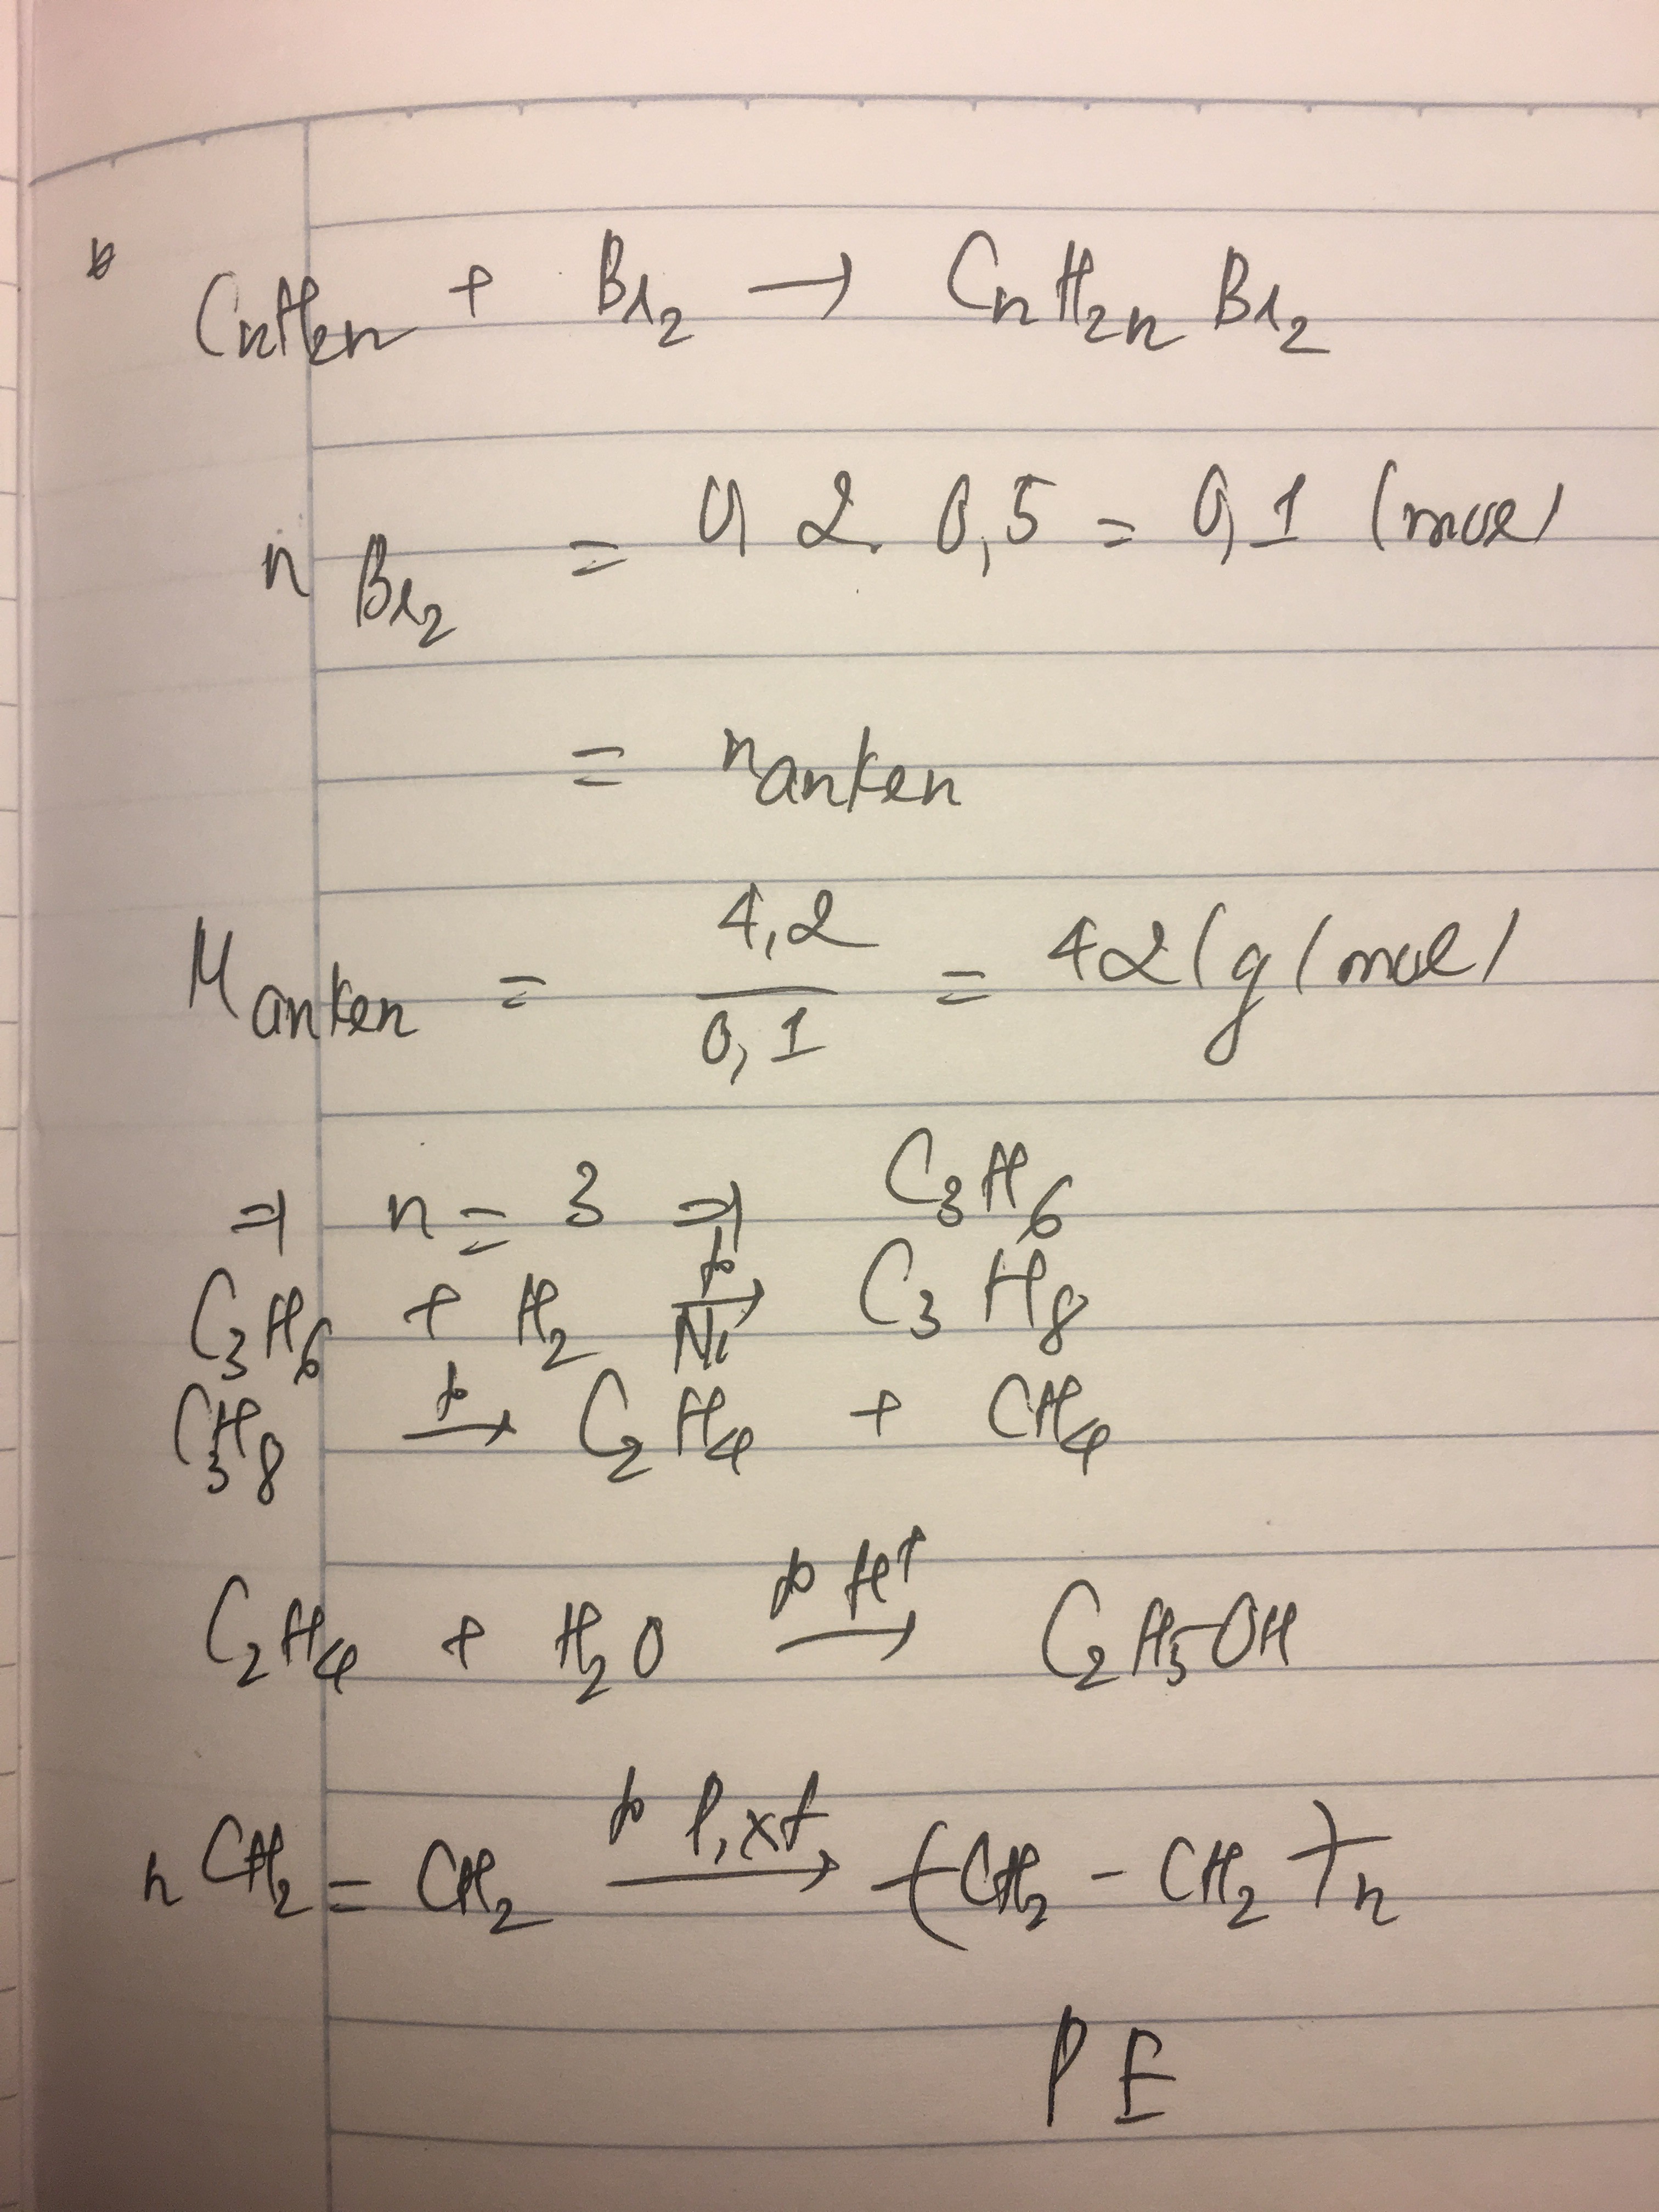 b
CnH2n + Br2 → CnH2nBr2
n Br2 = 0,2. 0,5 = 0,1 (mol)
= n anken
M anken = 4,2 / 0,1 = 42 (g/mol)
⇒ n = 3 ⇒ C3H6
C3H6 + H2 →(t°, Ni) C3H8
C3H8 →(t°) C2H4 + CH4
C2H4 + H2O →(t° H+) C2H5OH
n CH2 = CH2 →(t° P, xt) (CH2 - CH2)n
PE